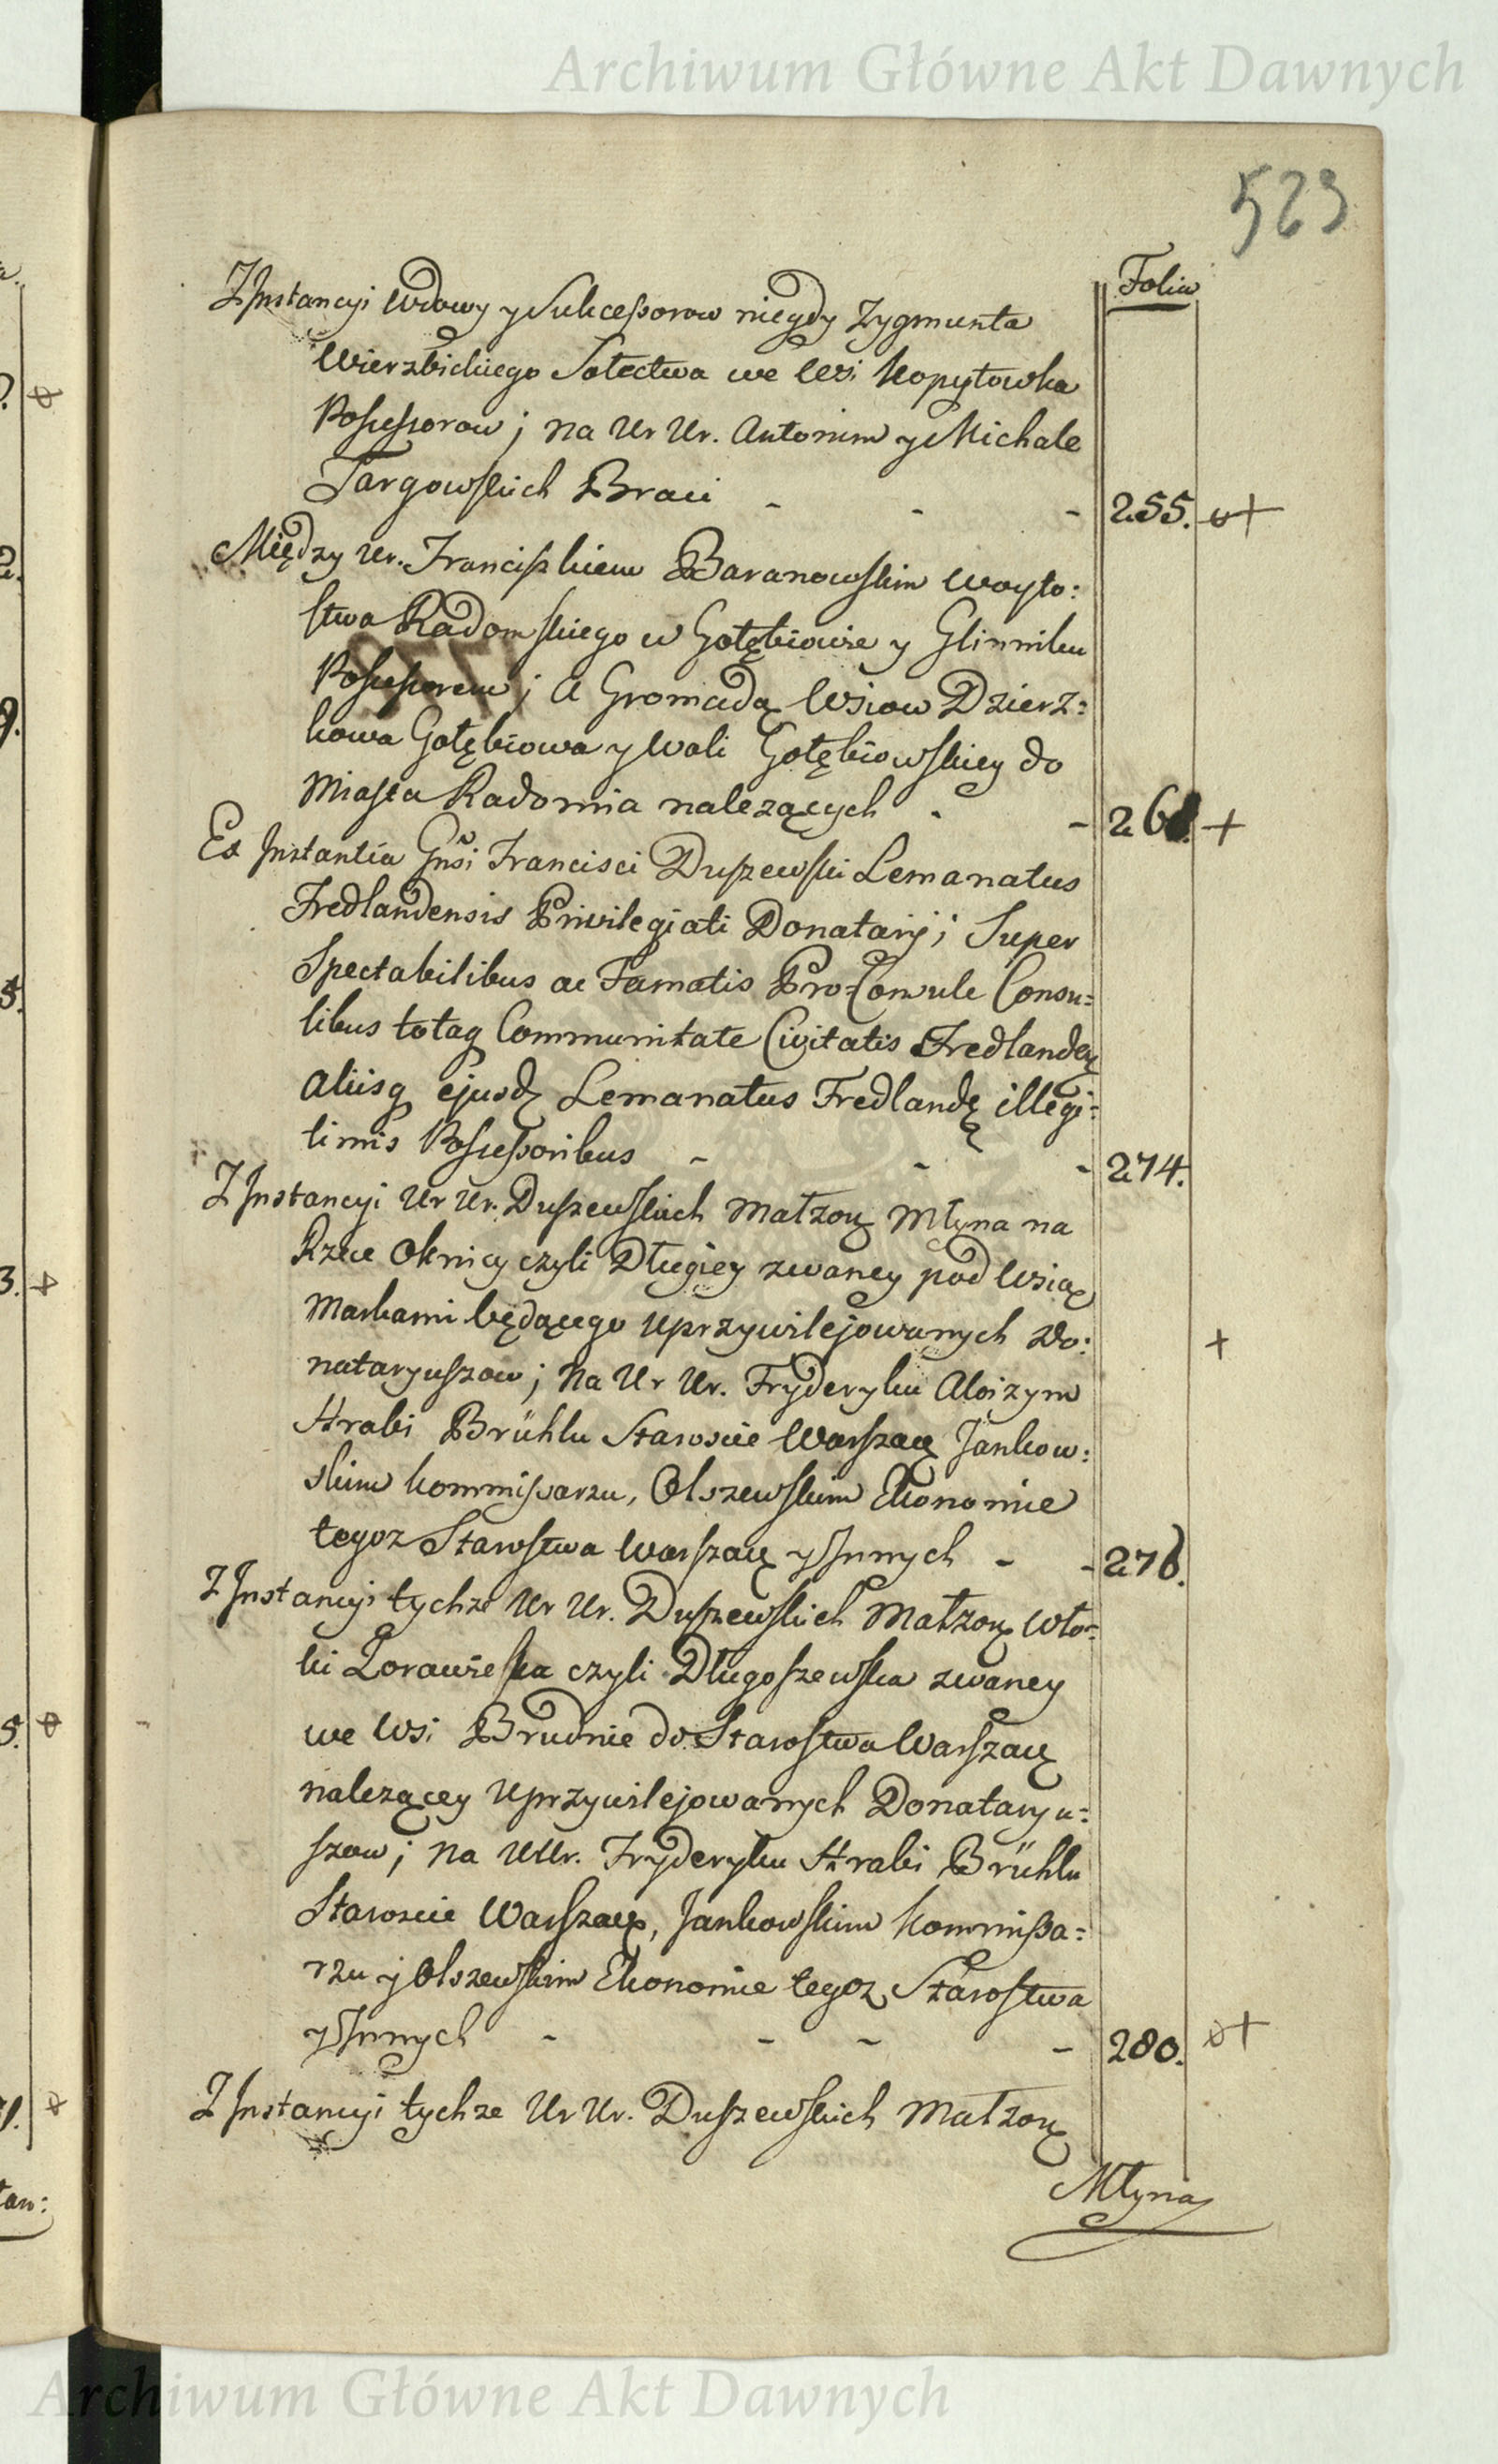 Archiwum Główne Akt Dawnych
523
Folia
Z Instancyi Wdowy y Sukcessorow niegdy Zygmunta
Wierzbickiego Sołectwa we Wsi Kopytowka
Possessorow; na Ur Ur. Antonim y Michale
Targowskich Braci - - - 255.
Między Ur. Franciszkiem Baranowskim Woyto:
stwa Radomskiego w Gołębiowie y Glinniku
Possessorem; a Gromadą Wsiow Dzierz:
kowa Gołębiowa y Woli Gołębiowskiey do
Miasta Radomia nalezących - - 26
Ex Instantia Gnsi Francisci Duszewski Lemanatus
Fredlandensis Privilegiati Donatarij; Super
Spectabilibus ac Famatis Pro-Consule Consu=
libus totaq Communitate Civitatis Fredlandeń
aliisq ejusdę Lemanatus Fredlandę illegi=
timis Possessoribus - - - 274.
Z Instancyi Ur Ur. Duszewskich Małzonę Młyna na
Rzece Oknicy czyli Długiey zwaney pod Wsią
Markami będącego uprzywilejowanych Do:
nataryuszow; na Ur Ur. Fryderyku Aloizym
Hrabi Brühlu Staroscie Warszaę Jankow:
skim Kommissarzu, Olszewskim Ekonomie
tegoz Starostwa Warszaę y Innych - - 276.
Z Instancyi tychze Ur Ur. Duszewskich Małzonę Wło=
ki Zorawieska czyli Długoszewska zwaney
we Wsi Brudnie do Starostwa Warszaę
nalezącey uprzywilejowanych Donataryu=
szow; na UUr. Fryderyku Hrabi Brühlu
Staroscie Warszaę, Jankowskim Kommissa=
rzu y Olszewskim Ekonomie tegoz Starostwa
y Innych - - - - 280.
Z Instancyi tychze Ur Ur. Duszewskich Małzonę
Młyna
Archiwum Główne Akt Dawnych